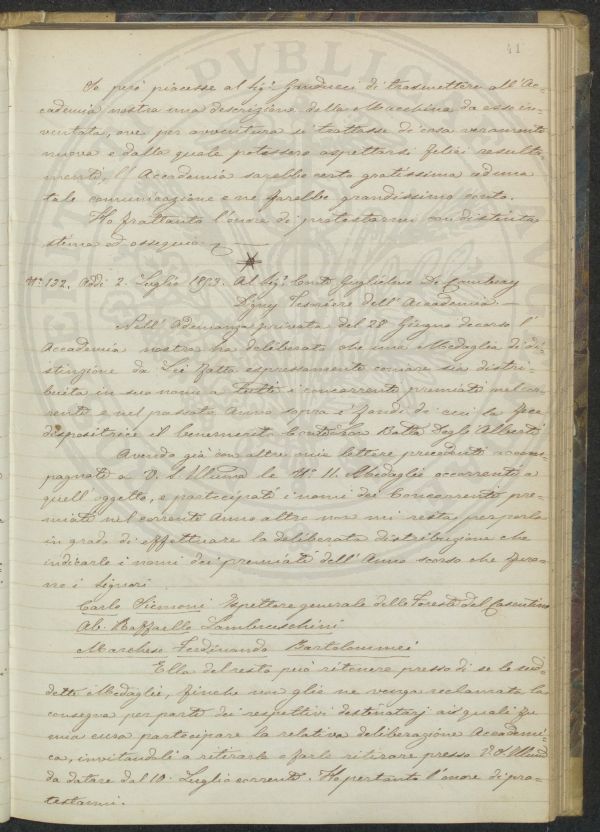 41
Se però piacesse al Sigr. Ganducci di trasmettere all'Ac-
cademia nostra una descrizione della Macchina da esso in-
ventata, ove per avventura si trattasse di cosa veramente
nuova e dalla quale potessero aspettarsi felici resulta-
menti, l'Accademia sarebbe certo gratissima ad una
tale comunicazione e ne farebbe grandissimo conto.
Ho frattanto l'onore di protestarmi con distinta
stima ed ossequio
N° 132. Addì 2. Luglio Al Sigr. Conte Guglielmo De
Tesoriere dell'Accademia.
Nell'Adunanza privata del 28 Giugno decorso l'
Accademia nostra ha deliberato che una Medaglia di di-
stinzione da Lei fatta espressamente coniare sia distri-
buita in suo nome a Tutti i concorrenti premiati nel cor-
rente e nel passato Anno sopra i fondi di cui la fece
depositrice il benemerito Conte Batta degl'Alberti
Avendo già con altre mie lettere precedenti accom-
pagnate a V. S. Illma le N° 11. Medaglie occorrenti a
quell'oggetto, e partecipati i nomi dei Concorrenti pre-
miati nel corrente Anno altro non mi resta per porla
in grado di effettuare la deliberata distribuzione che
indicarle i nomi dei premiati dell'Anno scorso che furo-
no i Signori
Carlo Siemoni Ispettore generale delle Foreste del Casentino
Ab. Raffaello Lambruschini
Marchese Ferdinando Bartolommei
Ella del resto può ritenere presso di se le sud-
dette Medaglie, finchè non glie ne venga reclamata la
consegna per parte dei respettivi destinatarj ai quali fu
mia cura partecipare la relativa deliberazione Accademi-
ca, invitandoli a ritirarle o farle ritirare presso V. S. Illma
da datare dal 10. Luglio corrente. Ho pertanto l'onore di pro-
testarmi.